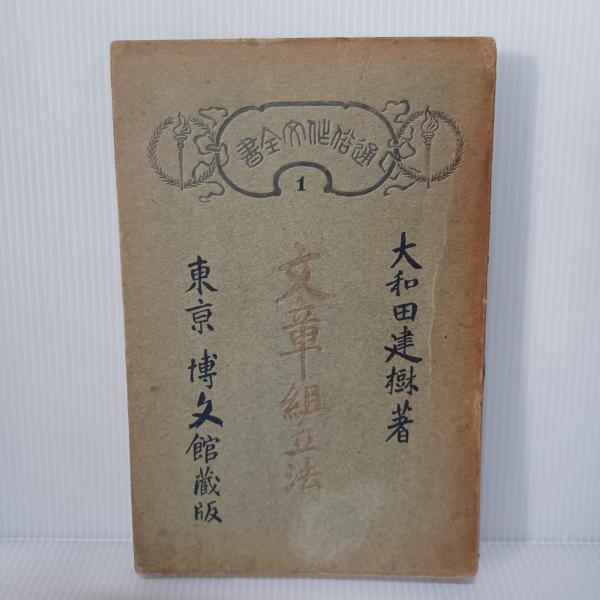 通俗作文全書
1
大和田建樹著
文章組立法
東京 博文館蔵版